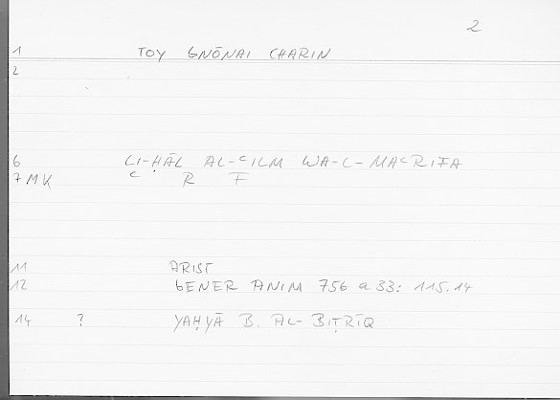 2
1 TOY GNŌNAI CHARIN
2
6 LI-ḤĀL AL-ᶜILM WA-L-MAᶜRIFA
7 MK ᶜ R F
11 ARIST
12 GENER ANIM 756 a 33: 115.14
14 ? YAḤYĀ B. AL-BIṬRĪQ